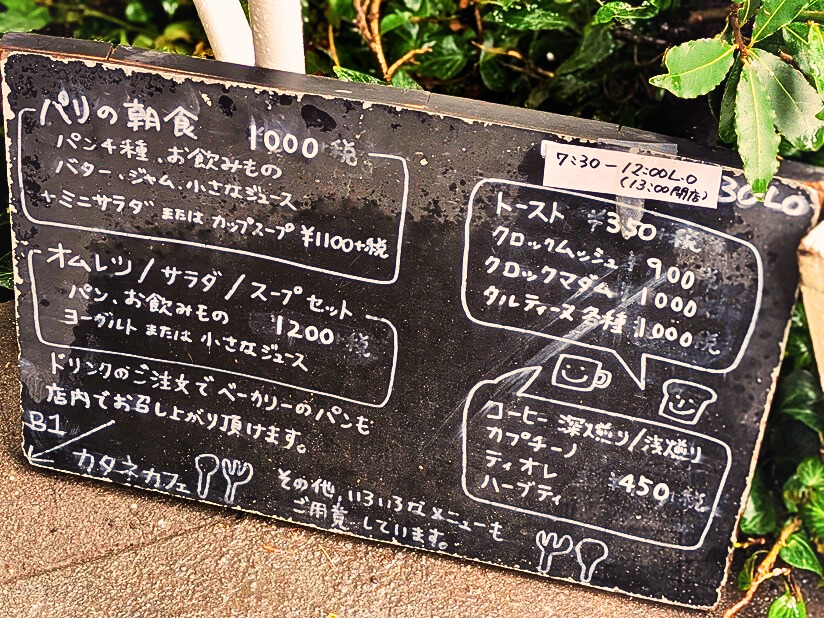 パリの朝食 1000+税
パン4種、お飲みもの
バター、ジャム、小さなジュース
+ミニサラダ または カップスープ ¥1100+税
オムレツ/サラダ/スープセット
パン、お飲みもの 1200 税
ヨーグルト または 小さなジュース
ドリンクのご注文でベーカリーのパンも
店内でお召し上がり頂けます。
B1
カタネカフェ
その他、いろいろなメニューも
ご用意しています。
7:30-12:00L.O
(13:00閉店)
30LO
トースト ¥350 税
クロックムッシュ 900
クロックマダム 1000
タルティーヌ各種 1000 税
コーヒー 深煎り/浅煎り
カプチーノ
ティオレ ¥450 税
ハーブティ